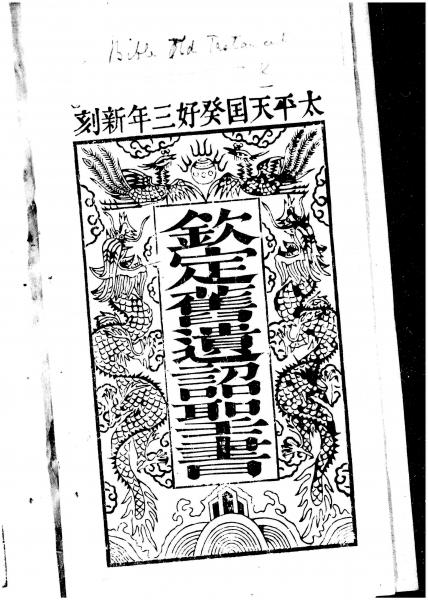 Bible Old Testament
太平天囯癸好三年新刻
欽定舊遺詔聖書